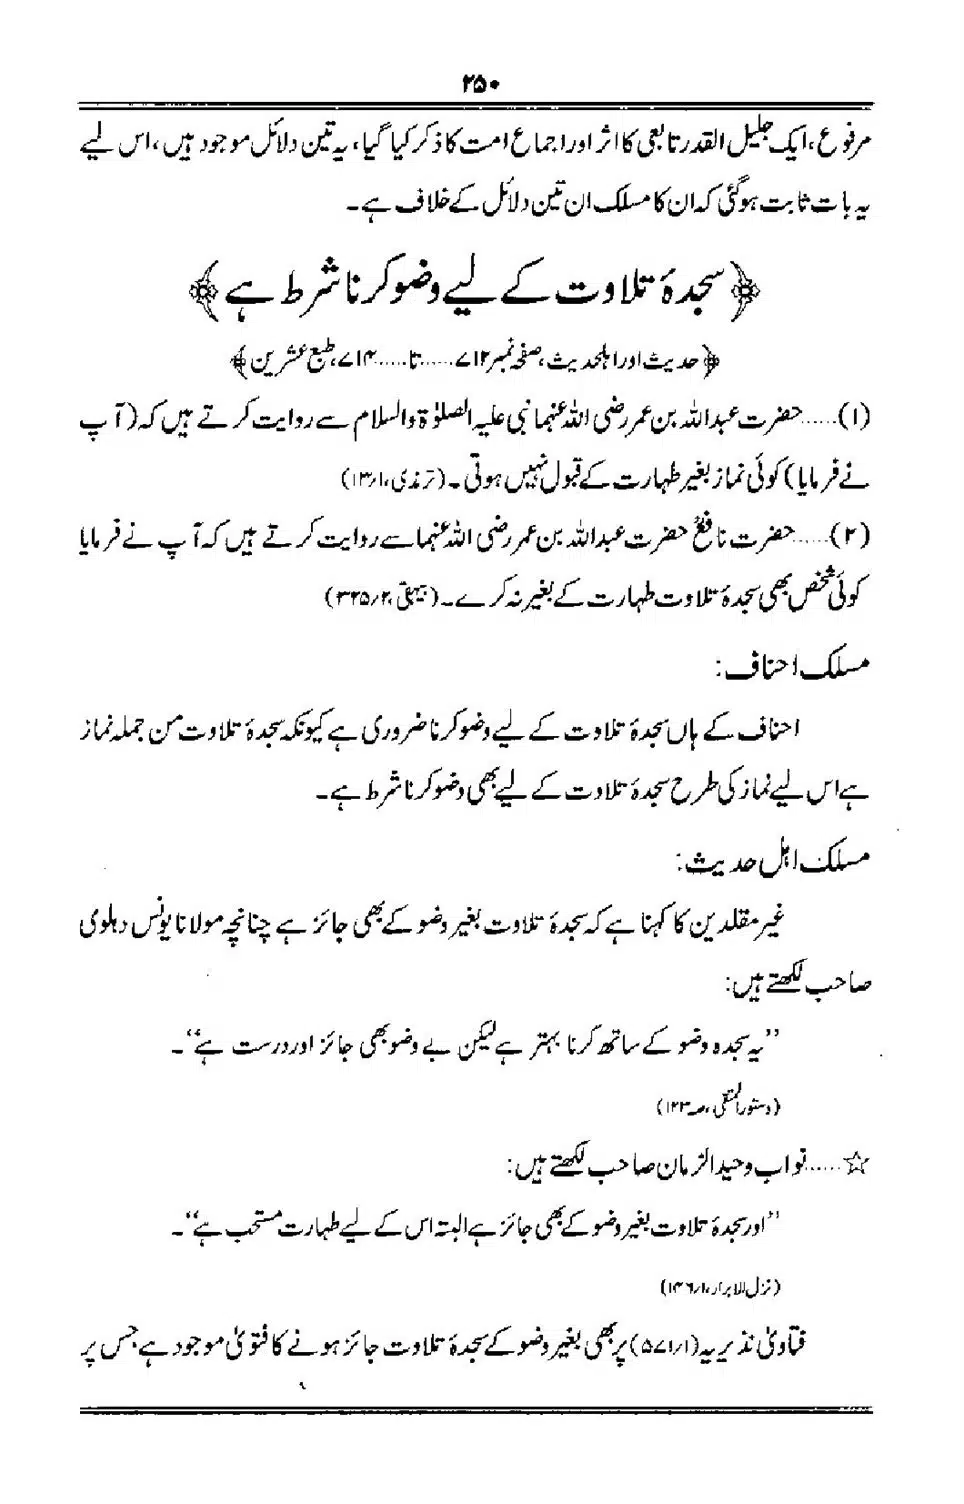 ۲۵۰
مرفوع، ایک جلیل القدر تابعی کا اثر اور اجماع امت کا ذکر کیا گیا، یہ تین دلائل موجود ہیں، اس لیے
یہ بات ثابت ہوگئی کہ ان کا مسلک ان تین دلائل کے خلاف ہے۔
﴿سجدۂ تلاوت کے لیے وضو کرنا شرط ہے﴾
﴿حدیث اور اہلحدیث، صفحہ نمبر ۷۱۲.....تا.....۷۱۴، طبع عشرین﴾
(۱)......حضرت عبداللہ بن عمر رضی اللہ عنہما نبی علیہ الصلوٰۃ والسلام سے روایت کرتے ہیں کہ (آپ
نے فرمایا) کوئی نماز بغیر طہارت کے قبول نہیں ہوتی۔ (ترمذی، ۱/۳)
(۲)......حضرت نافعؒ حضرت عبداللہ بن عمر رضی اللہ عنہما سے روایت کرتے ہیں کہ آپ نے فرمایا
کوئی شخص بھی سجدۂ تلاوت طہارت کے بغیر نہ کرے۔ (بیہقی، ۲/۳۲۵)
مسلک احناف:
احناف کے ہاں سجدۂ تلاوت کے لیے وضو کرنا ضروری ہے کیونکہ سجدۂ تلاوت من جملہ نماز
ہے اس لیے نماز کی طرح سجدۂ تلاوت کے لیے بھی وضو کرنا شرط ہے۔
مسلک اہل حدیث:
غیر مقلدین کا کہنا ہے کہ سجدۂ تلاوت بغیر وضو کے بھی جائز ہے چنانچہ مولانا یونس دہلوی
صاحب لکھتے ہیں:
’’یہ سجدہ وضو کے ساتھ کرنا بہتر ہے لیکن بے وضو بھی جائز اور درست ہے‘‘۔
(دستور المتقی، صـ ۱۲۳)
☆......نواب وحید الزمان صاحب لکھتے ہیں:
’’اور سجدۂ تلاوت بغیر وضو کے بھی جائز ہے البتہ اس کے لیے طہارت مستحب ہے‘‘۔
(نزل الابرار، ۱/۱۴۶)
فتاویٰ نذیریہ (۱/۵۷۱) پر بھی بغیر وضو کے سجدۂ تلاوت جائز ہونے کا فتویٰ موجود ہے جس پر